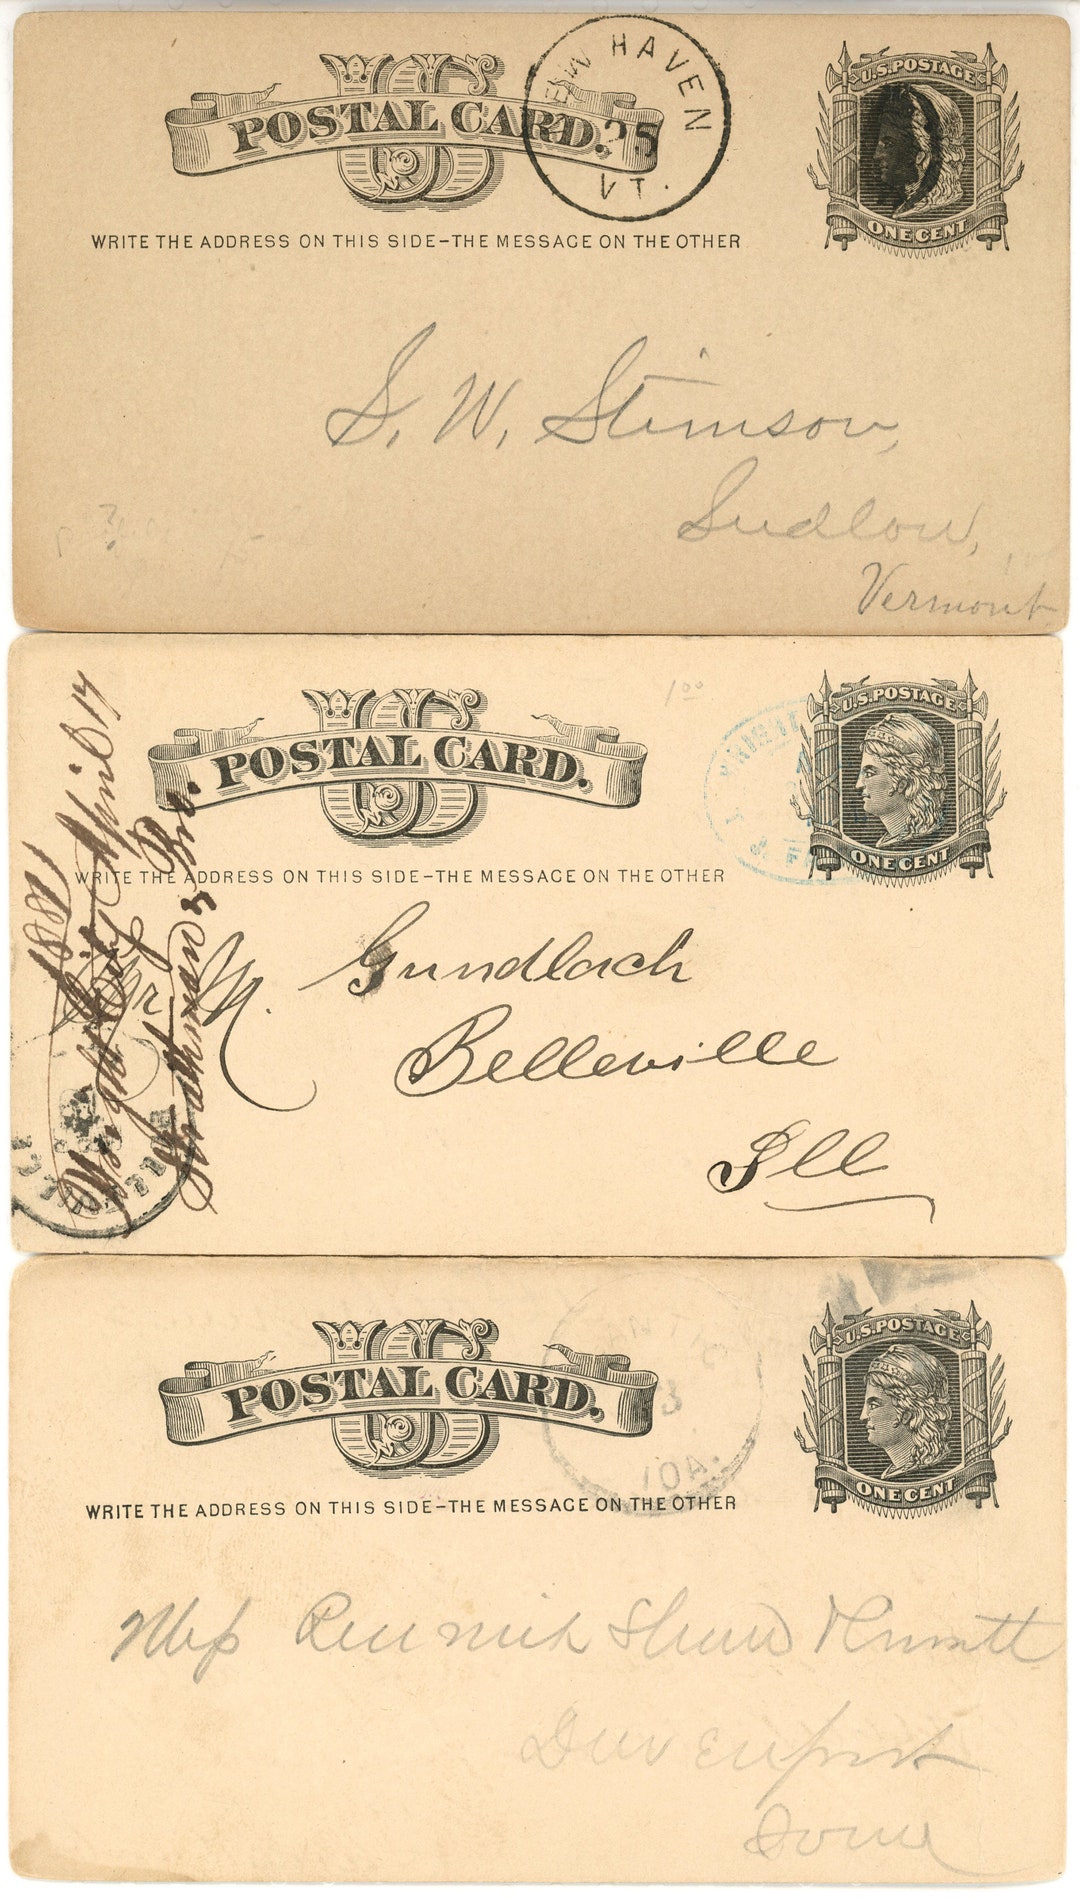 US
POSTAL CARD.
NEW HAVEN
25
VT.
U.S. POSTAGE
ONE CENT
WRITE THE ADDRESS ON THIS SIDE–THE MESSAGE ON THE OTHER
S. W. Stimson,
Ludlow,
Vermont
US
POSTAL CARD.
1.00
U.S. POSTAGE
ONE CENT
WRITE THE ADDRESS ON THIS SIDE–THE MESSAGE ON THE OTHER
Wright City April 17
1881
Strathman & Bro.
Mr N. Gundlach
Belleville
Ill
US
POSTAL CARD.
3
IOA.
U.S. POSTAGE
ONE CENT
WRITE THE ADDRESS ON THIS SIDE–THE MESSAGE ON THE OTHER
Renwick Shaw
Davenport
Iowa